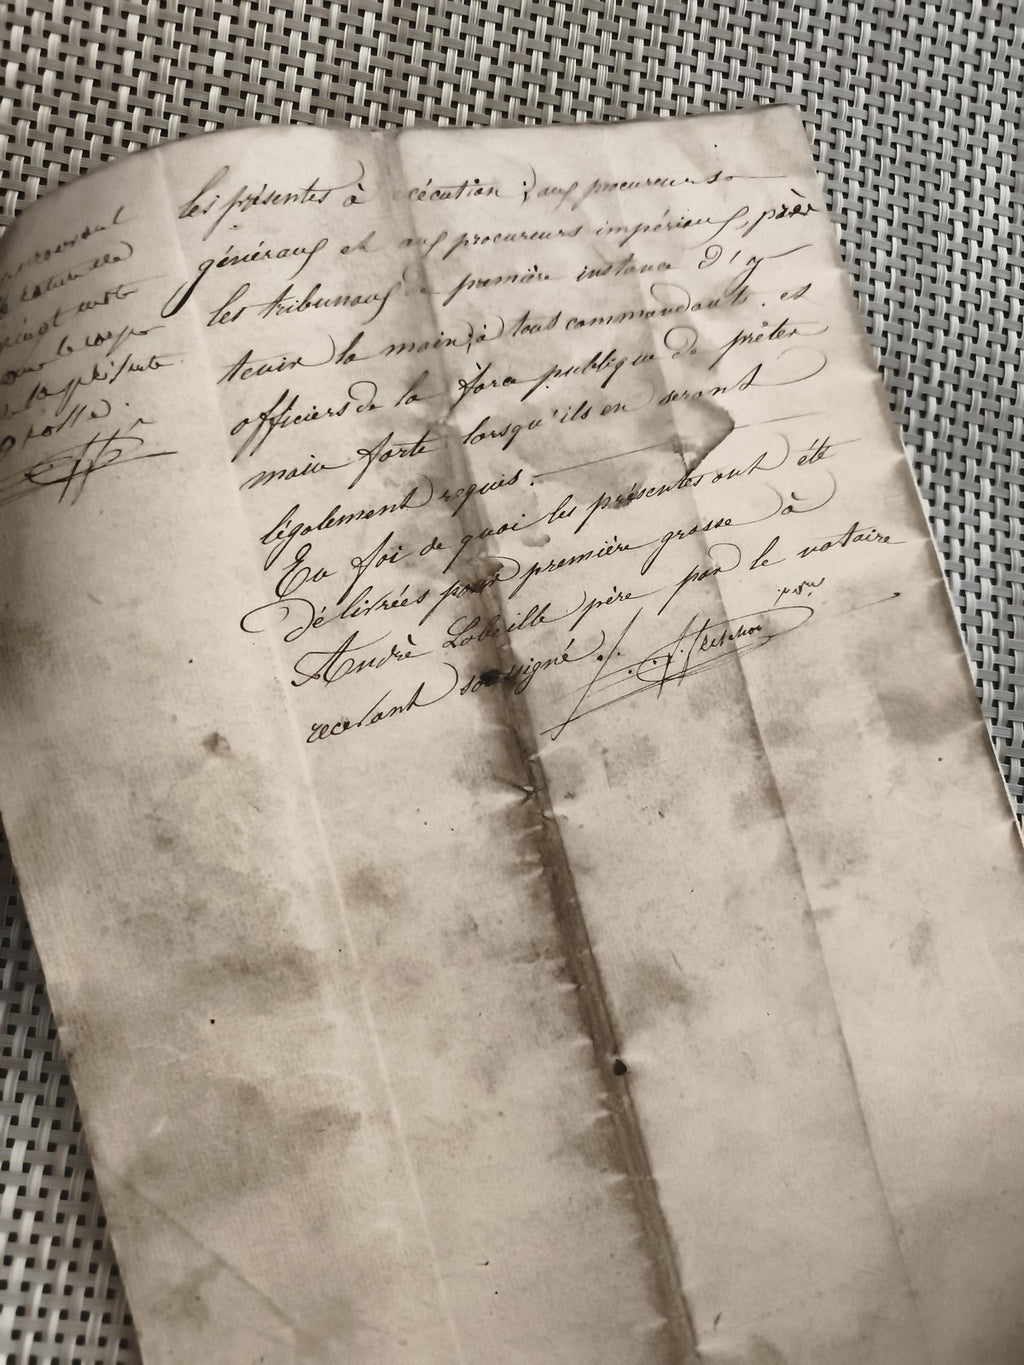 les présentes à exécution ; aux procureurs
généraux et aux procureurs impériaux, près
les tribunaux de première instance d'y
tenir la main, à tous commandants et
officiers de la force publique de prêter
main forte lorsqu'ils en seront
légalement requis.
En foi de quoi les présentes ont été
délivrées pour première grosse à
André Labeille père par le notaire
recevant soussigné ./.
vingt mots
la présente
grosse.